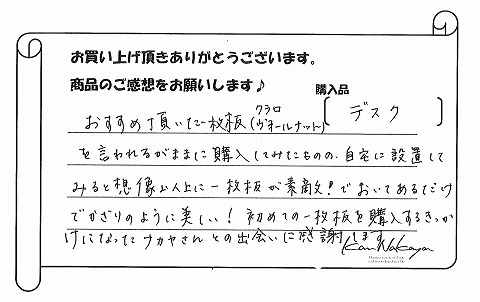 お買い上げ頂きありがとうございます。
商品のご感想をお願いします♪
購入品
デスク
おすすめ頂いた一枚板(クラロウォールナット)
を言われるがままに購入してみたものの、自宅に設置して
みると想像以上に一枚板が素敵!でおいてあるだけ
でかざりのように美しい!初めての一枚板を購入するきっか
けになったナカヤさんとの出会いに感謝します
Kan Nakaya